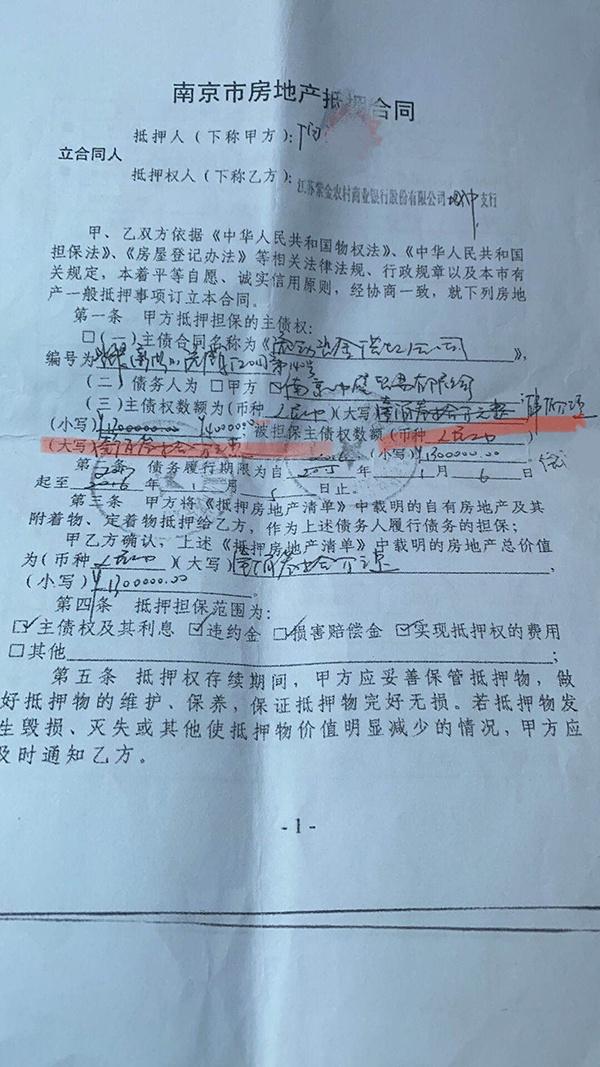 南京市房地产抵押合同
抵押人（下称甲方）：
立合同人
抵押权人（下称乙方）：江苏紫金农村商业银行股份有限公司 支行
甲、乙双方依据《中华人民共和国物权法》、《中华人民共和国
担保法》、《房屋登记办法》等相关法律法规、行政规章以及本市有
关规定，本着平等自愿、诚实信用原则，经协商一致，就下列房地
产一般抵押事项订立本合同。
第一条 甲方抵押担保的主债权：
□（一）主债合同名称为《 》，
编号为
（二）债务人为□甲方 南京 有限公司
（三）主债权数额为（币种 人民币）（大写）
（小写） 被担保主债权数额（币种 人民币）
（大写） （小写）¥1300000.00
第二条 债务履行期限为自 2015 年 1 月 6 日
起至 2016 年 1 月 5 日止。
第三条 甲方将《抵押房地产清单》中载明的自有房地产及其
附着物、定着物抵押给乙方，作为上述债务人履行债务的担保；
甲乙方确认，上述《抵押房地产清单》中载明的房地产总价值
为（币种 人民币）（大写）
（小写）¥1300000.00
第四条 抵押担保范围为：
☑主债权及其利息 ☑违约金 ☑损害赔偿金 ☑实现抵押权的费用
□其他 ；
第五条 抵押权存续期间，甲方应妥善保管抵押物，做
好抵押物的维护、保养，保证抵押物完好无损。若抵押物发
生毁损、灭失或其他使抵押物价值明显减少的情况，甲方应
及时通知乙方。
- 1 -